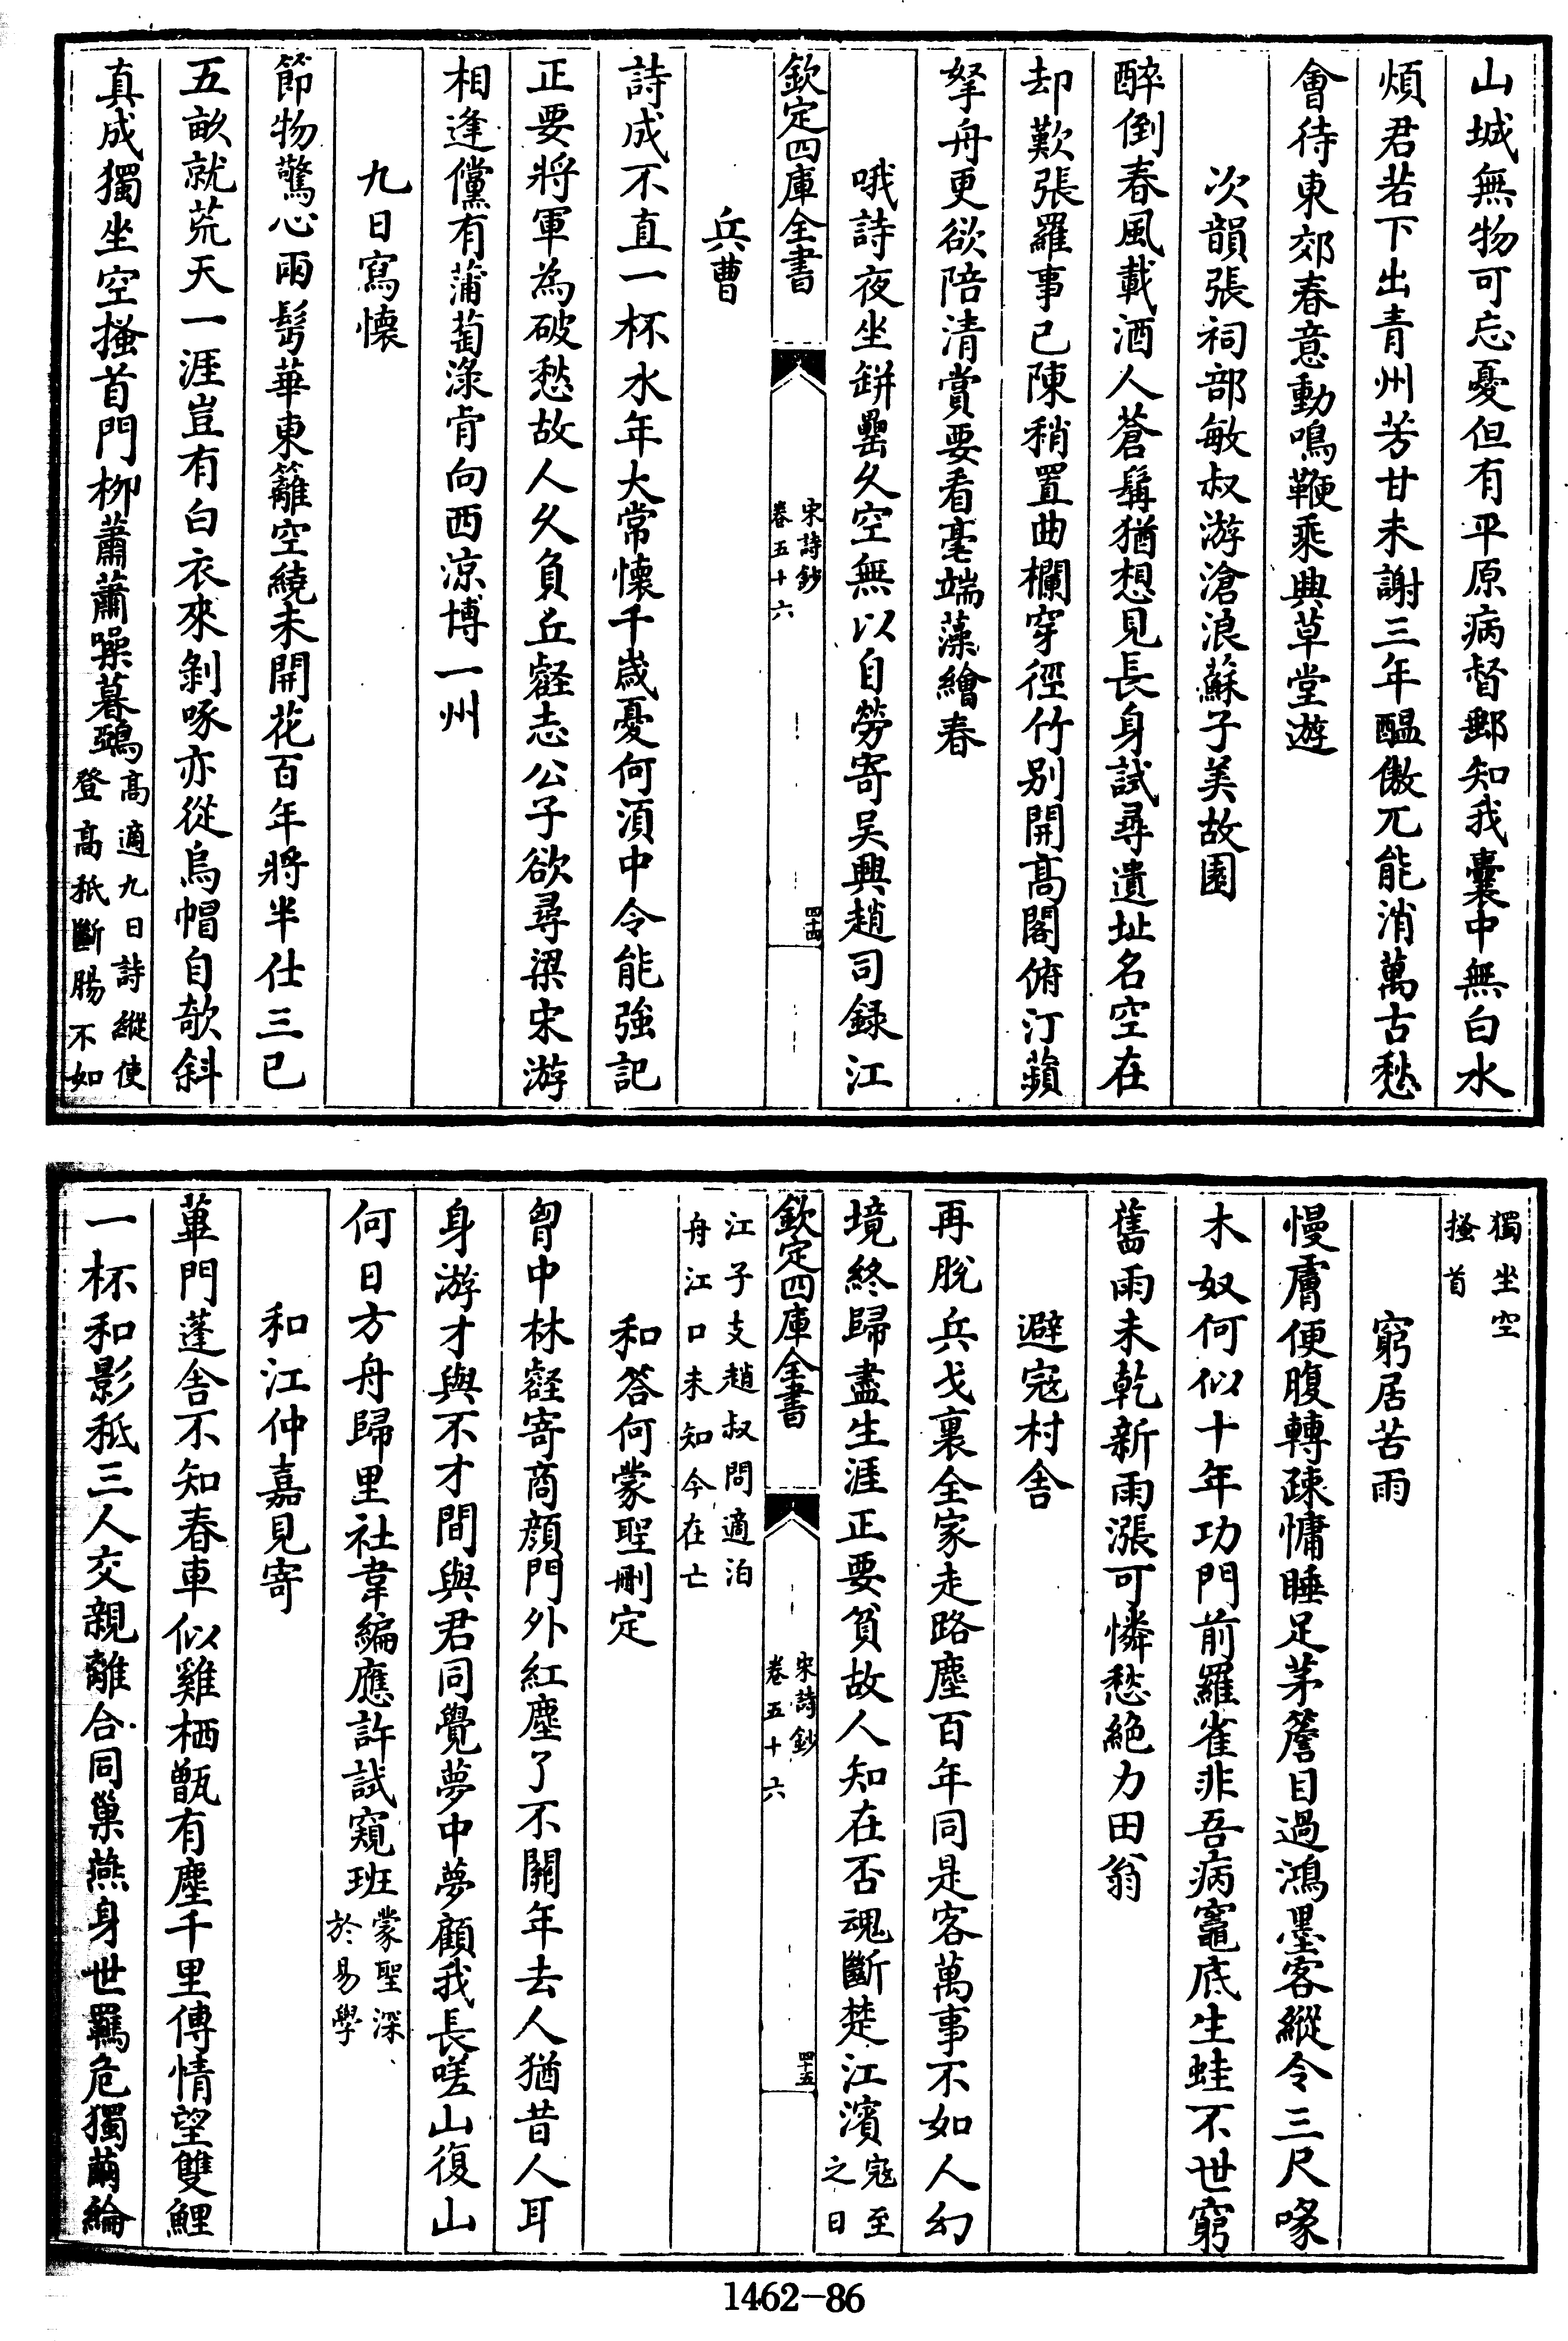 山城無物可忘憂但有平原病督郵知我囊中無白水
煩君若下出青州芳甘未謝三年醞傲兀能消萬古愁
會待東郊春意動鳴鞭乘興草堂遊
次韻張祠部敏叔游滄浪蘇子美故園
醉倒春風載酒人蒼髯猶想見長身試尋遺址名空在
却歎張羅事已陳稍置曲欄穿徑竹别開高閣俯汀蘋
拏舟更欲陪清賞要看毫端藻繪春
哦詩夜坐缾罍久空無以自勞寄吴興趙司録江
欽定四庫全書
宋詩鈔
卷五十六
四十四
兵曹
詩成不直一杯水年大常懷千歲憂何湏中令能強記
正要將軍為破愁故人久負丘壑志公子欲尋梁宋游
相逢儻有蒲萄渌肯向西涼博一州
九日寫懷
節物驚心兩鬢華東籬空繞未開花百年將半仕三已
五畝就荒天一涯豈有白衣來剝啄亦從烏帽自欹斜
真成獨坐空搔首門柳蕭蕭噪暮鵶
高適九日詩縱使
登高秖斷腸不如
獨坐空
搔首
窮居苦雨
慢膚便腹轉疎慵睡足茅簷目過鴻墨客縱令三尺喙
木奴何似十年功門前羅雀非吾病竈底生蛙不世窮
舊雨未乾新雨漲可憐愁絶力田翁
避寇村舍
再脱兵戈裏全家走路塵百年同是客萬事不如人幻
境終歸盡生涯正要貧故人知在否魂斷楚江濱
寇至
之日
欽定四庫全書
宋詩鈔
卷五十六
四十五
江子支趙叔問適泊
舟江口未知今在亡
和答何蒙聖刪定
胷中林壑寄商顔門外紅塵了不關年去人猶昔人耳
身游才與不才間與君同覺夢中夢顧我長嗟山復山
何日方舟歸里社韋編應許試窺班
蒙聖深
於易學
和江仲嘉見寄
蓽門蓬舍不知春車似雞栖甑有塵千里傳情望雙鯉
一杯和影秖三人交親離合同巢燕身世羈危獨繭綸
1462-86